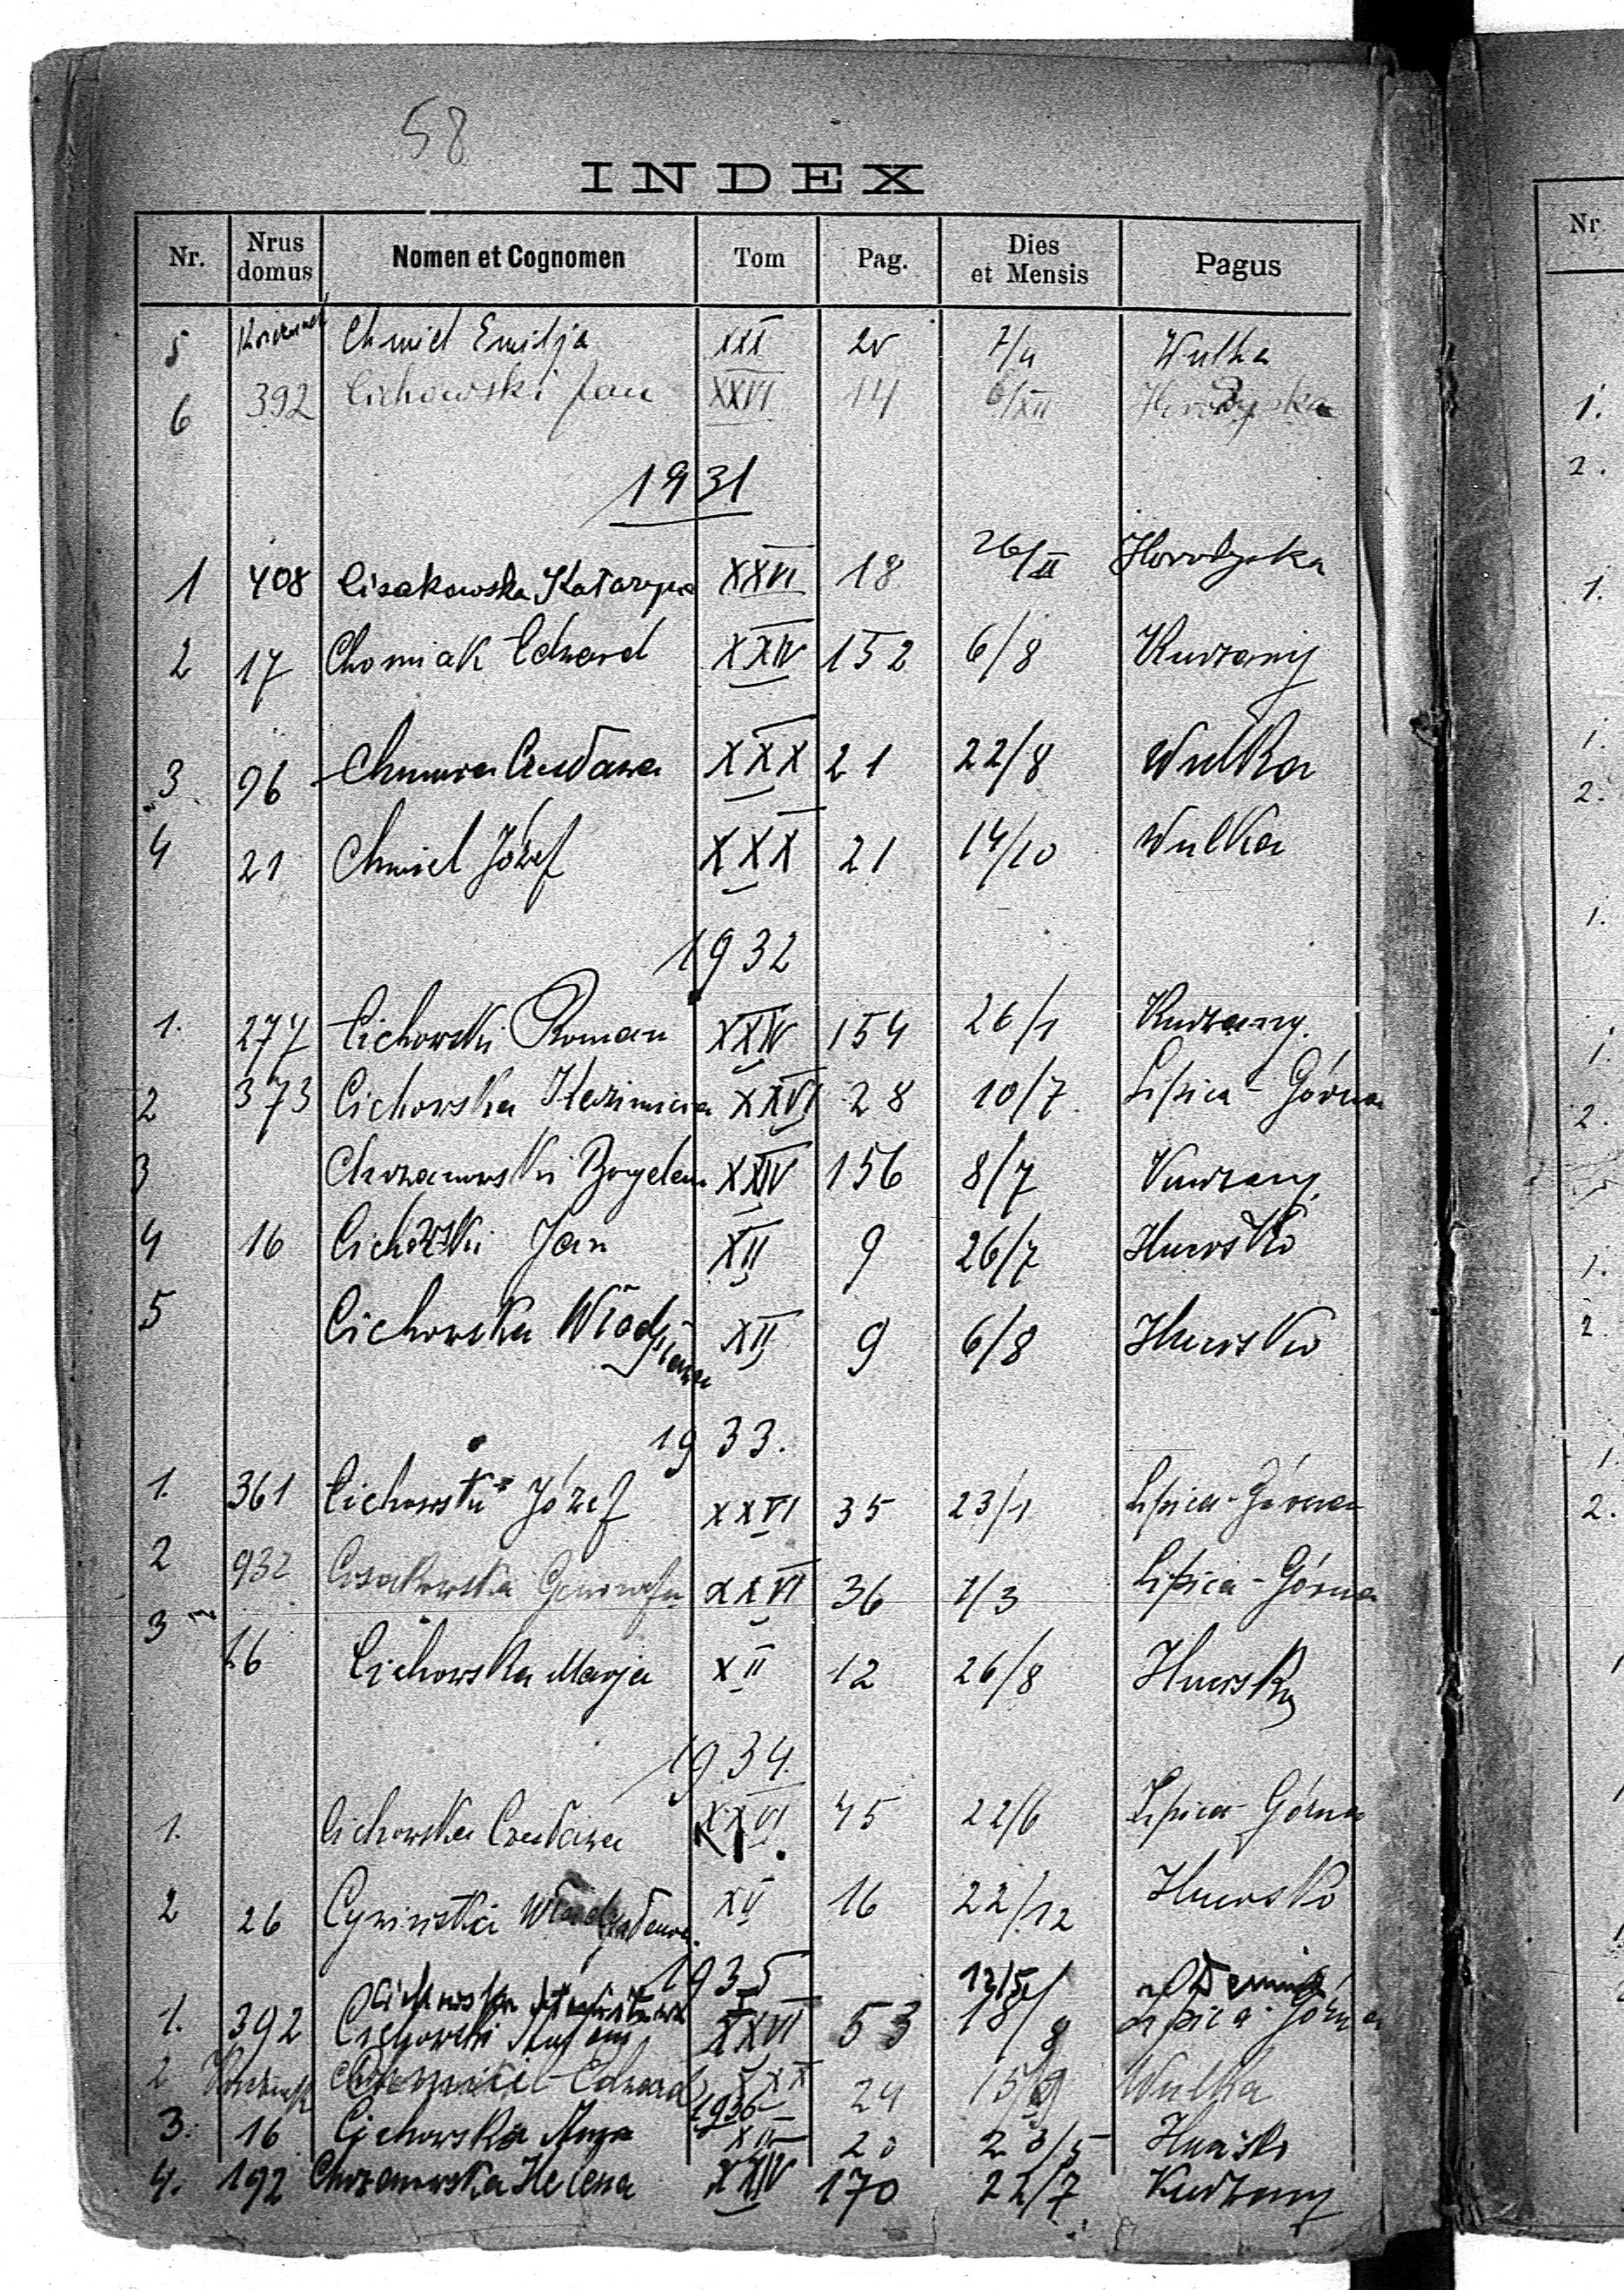 58
INDEX
Nr. Nrus domus Nomen et Cognomen Tom Pag. Dies et Mensis Pagus
5 Chmiel Emilja XXX 20 7/4 Wulka
6 392 Cichowski Jan XXVI 14 6/XII Horodyska
1931
1 408 Cisakowska Katarzyna XXVI 18 26/II Horodyska
2 17 Chomiak Edward XXIV 152 6/8 Kurzany
3 96 Chmura Czesława XXX 21 22/8 Wulka
4 21 Chmiel Józef XXX 21 14/10 Wulka
1932
1. 277 Cichowski Roman XXIV 154 26/1 Kurzany.
2 373 Cichowska Kazimiera XXVI 28 10/7. Lipica-Górna
3 Chrzanowski Bogdan XXIV 156 8/7 Kurzany.
4 16 Cichowski Jan XII 9 26/7 Hucisko
5 Cichowska Władysława XII 9 6/8 Hucisko
1933.
1. 361 Cichowski Józef XXVI 35 23/1 Lipica-Górna
2 932 Cisakowska Genowefa XXVI 36 1/3 Lipica-Górna
3 16 Cichowska Marja XII 12 26/8 Hucisko
1934.
1. Cichowska Czesława XXVI 45 22/6 Lipica-Górna
2 26 16 22/12 Hucisko
1935
Cichowska Stanisława 12/5
1. 392 Cichowski XXVI 53 18/8 Lipica-Górna
2 Edward XXX 24 15/9 Wulka
1936
3. 16 Cichowska Anna XII 20 23/5 Hucisko
4. 192 Chrzanowska Helena XXIV 170 22/7 Kurzany
Nr
1.
2.
1.
1.
2.
1.
1.
2.
1.
2.
1.
2.